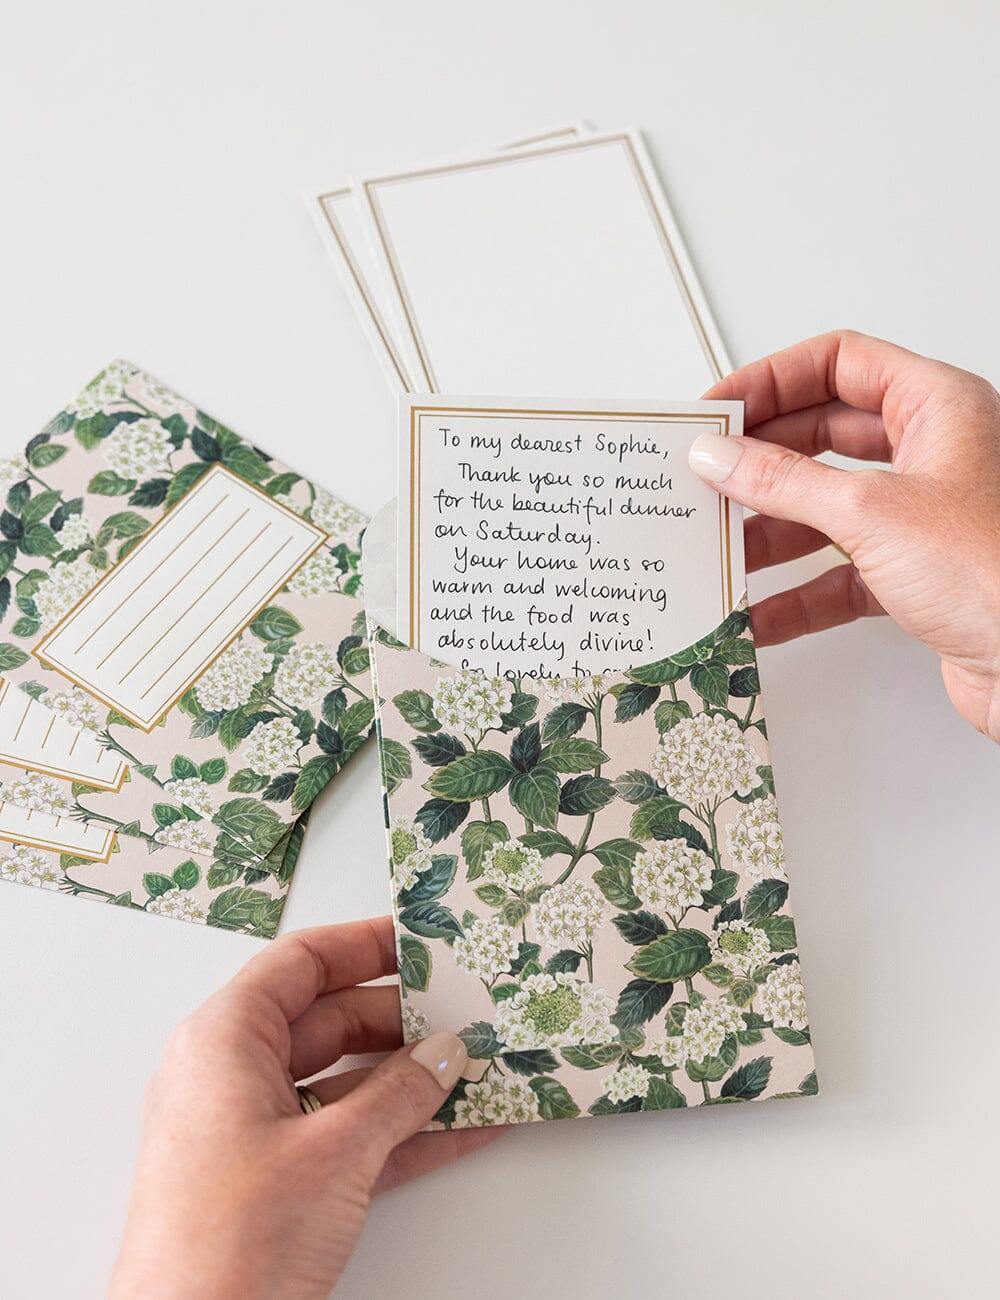 To my dearest Sophie,
Thank you so much
for the beautiful dinner
on Saturday.
Your home was so
warm and welcoming
and the food was
absolutely divine!
So lovely to